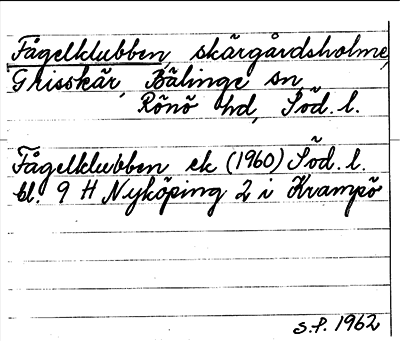 Fågelklubben, skärgårdsholme,
Grisskär, Bälinge sn,
Rönö hd, Söd. l.
Fågelklubben ek (1960) Söd. l.
bl. 9 H Nyköping 2 i Krampö
S.P. 1962